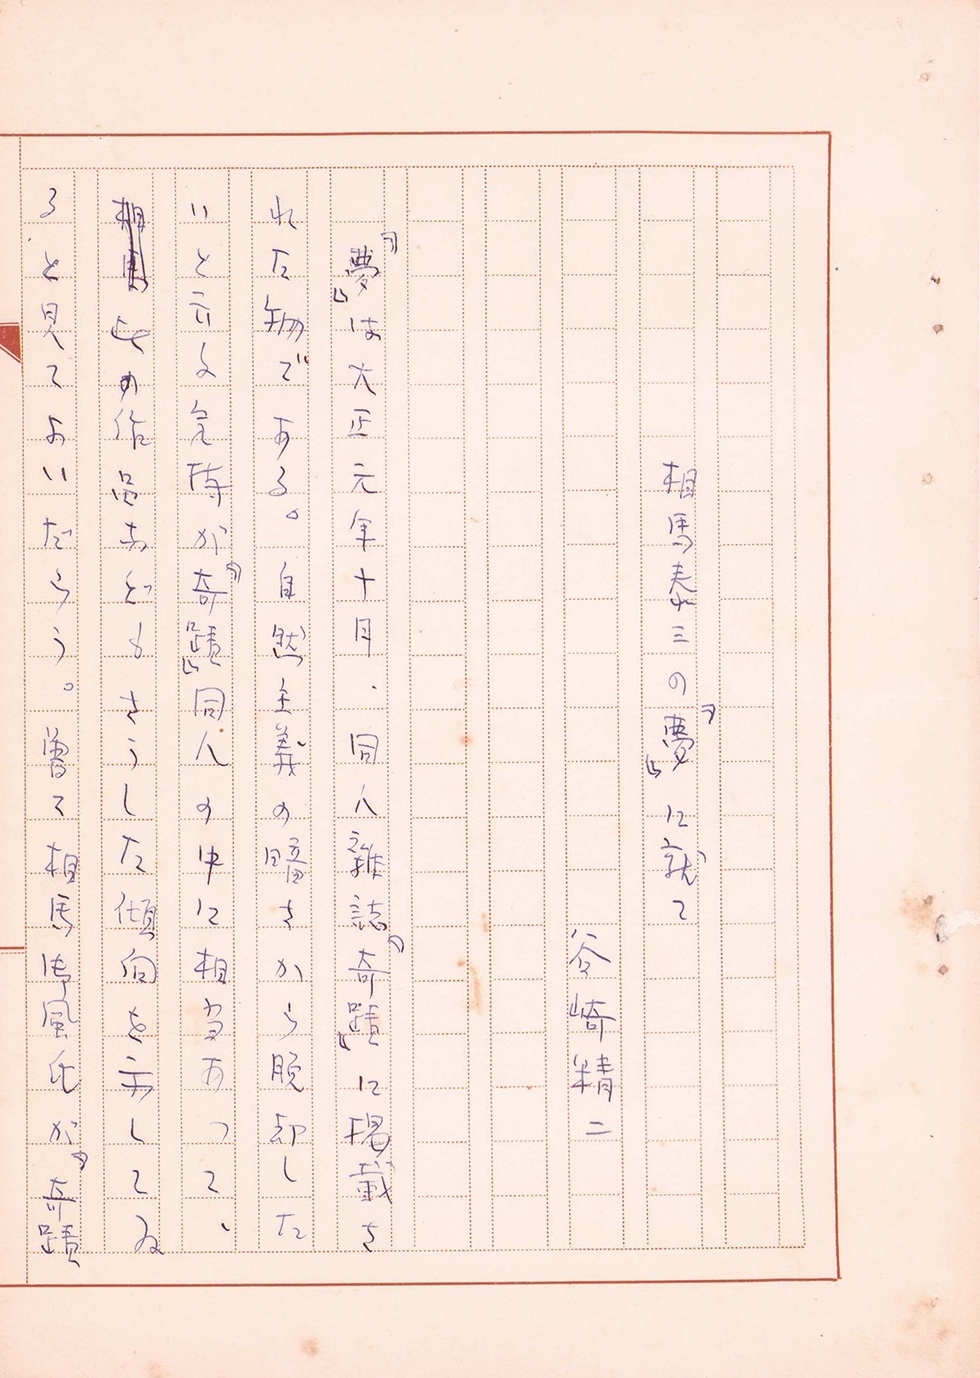 相馬泰三の『夢』に就て
谷崎精二
『夢』は大正元年十月、同人雑誌『奇蹟』に掲載さ
れた物である。自然主義の暗さから脱却した
いと云ふ気持が『奇蹟』同人の中に相当あつて、
此の作品などもさうした傾向を示してゐ
ると見てよいだらう。曽て相馬御風氏が『奇蹟